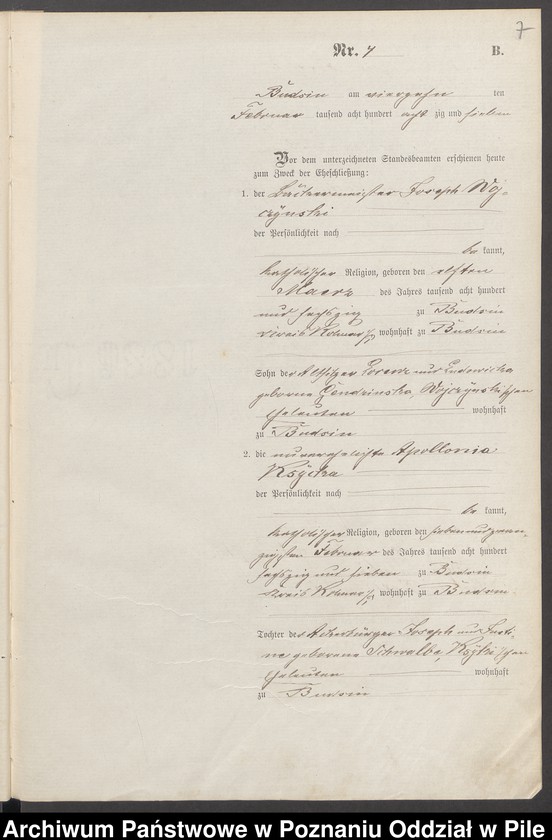 7
Nr. 7 B.
Budsin am vierzehn ten
Februar tausend acht hundert acht zig und sieben
Vor dem unterzeichneten Standesbeamten erschienen heute
zum Zweck der Eheschließung:
1. der Joseph Woj-
czynski
der Persönlichkeit nach
be kannt,
katholischer Religion, geboren den elften
Maerz des Jahres tausend acht hundert
und sechszig zu Budsin
Kreis Kolmar i/P, wohnhaft zu Budsin
Sohn der Altsitzer Lorenz und Ludowika
geborene Gendzinska, Wojczynski'schen
Eheleuten wohnhaft
zu Budsin
2. die unverehelichte Apollonia
Ksycka
der Persönlichkeit nach
be kannt,
katholischer Religion, geboren den siebenundzwan-
zigsten Februar des Jahres tausend acht hundert
sechszig und sieben zu Budsin
Kreis Kolmar i/P, wohnhaft zu Budsin
Tochter des Ackerbürger Joseph und Justi-
na geborene Schwalbe, 
Eheleuten wohnhaft
zu Budsin
Archiwum Państwowe w Poznaniu Oddział w Pile